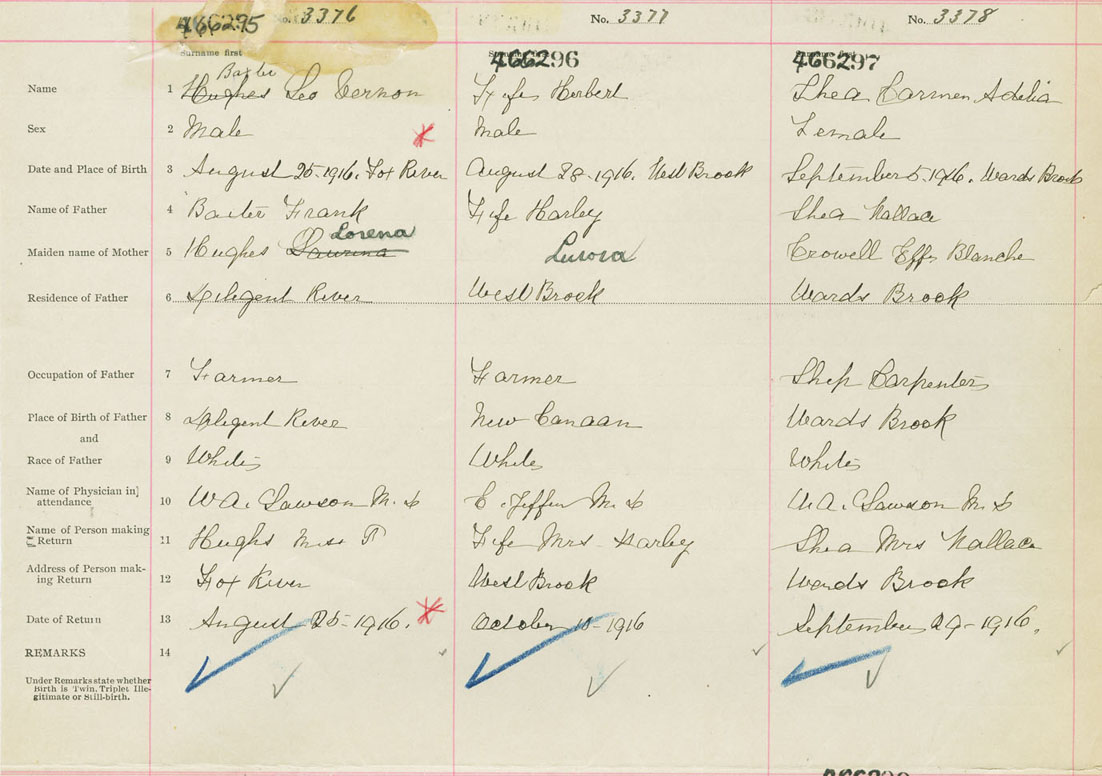 466295 No. 3376 No. 3377 No. 3378
Surname first 466296 466297
Name 1 Hughes Baxter Leo Vernon Fife Herbert Shea Carmen Adelia
Sex 2 Male Male Female
Date and Place of Birth 3 August 25-1916. Fox River August 28-1916. West Brook September 5-1916. Wards Brook
Name of Father 4 Baxter Frank Fife Harley Shea Wallace
Maiden name of Mother 5 Hughes Laurina Lorena Lurora Crowell Effy Blanche
Residence of Father 6 Diligent River West Brook Wards Brook
Occupation of Father 7 Farmer Farmer Ship Carpenter
Place of Birth of Father 8 Diligent River New Canaan Wards Brook
and
Race of Father 9 White White White
Name of Physician in
attendance 10 W A. Lawson M. D C. Jeffers M. D W A. Lawson M. D
Name of Person making
Return 11 Hughs Miss P Fife Mrs. Harley Shea Mrs Wallace
Address of Person mak-
ing Return 12 Fox River West Brook Wards Brook
Date of Return 13 August 25-1916. October 10-1916 September 29-1916.
REMARKS 14
Under Remarks state whether
Birth is Twin, Triplet Ille-
gitimate or Still-birth.